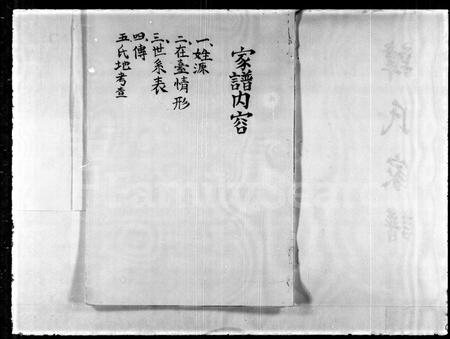 家譜内容
一、姓源
二、在臺情形
三、世系表
四、傳
五、氏地考查
FamilySearch